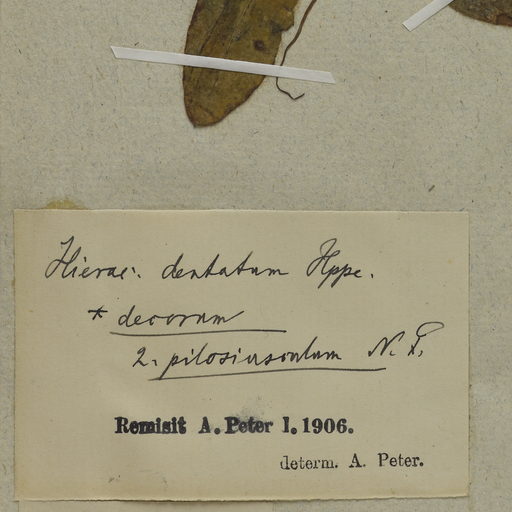 Hierac. dentatum Hppe.
* decorum
2. pilosiusculum N. P.
Remisit A. Peter I. 1906.
determ. A. Peter.